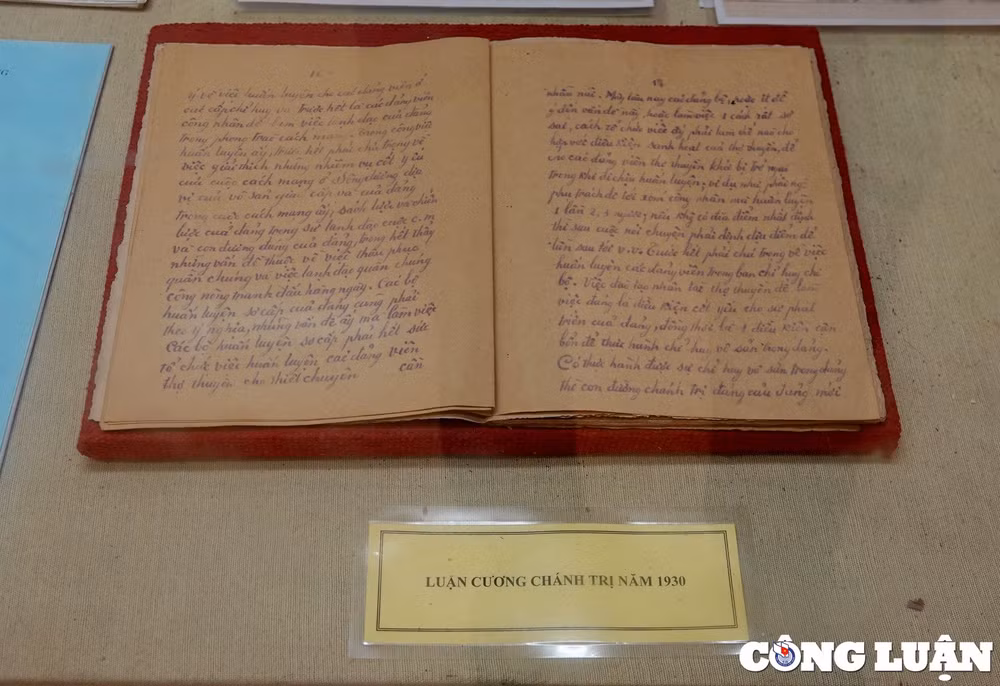 16
ý về việc huấn luyện cho các đảng viên ở
các cấp chỉ huy và trước hết là các đảng viên
công nhân để làm việc lãnh đạo của đảng
trong phong trào cách mạng. Trong công việc
huấn luyện ấy, trước hết phải chú trọng về
việc giải thích những nhiệm vụ cốt yếu
của cuộc cách mạng ở Đông dương, địa
vị của vô sản giai cấp và của đảng
trong cuộc cách mạng ấy, sách lược và chiến
lược của đảng trong sự lãnh đạo cuộc c.m
và con đường đảng của đảng, trong hết thảy
những vấn đề thuộc về việc thâu phục
quần chúng và việc lãnh đạo quần chúng
công nông tranh đấu hàng ngày. Các bộ
huấn luyện sơ cấp của đảng cũng phải
theo ý nghĩa, những vấn đề ấy mà làm việc
Các bộ huấn luyện sơ cấp phải hết sức
tổ chức việc huấn luyện các đảng viên
thợ thuyền cho thiết chuyên cần
nhẫn nại. Mấy lâu nay các đảng bộ, hoặc ít để
ý đến vấn đề này, hoặc làm việc 1 cách rất sơ
sài, cách tổ chức việc ấy phải làm thế nào cho
hợp với điều kiện sanh hoạt của thợ thuyền, để
cho các đảng viên thợ thuyền khỏi bị trở ngại
trong khi đi chịu huấn luyện, ví dụ như phải
phụ trách đi tới xóm công nhân mà huấn luyện
1 lần 2, 3 người, nếu không có địa điểm nhất định
thì sau cuộc nói chuyện phải định địa điểm để
lần sau tới v.v. Trước hết phải chú trọng về việc
huấn luyện các đảng viên trong ban chỉ huy chi
bộ. Việc đào tạo nhân tài thợ thuyền để làm
việc đảng là điều kiện cốt yếu cho sự phát
triển của đảng, đồng thời là 1 điều kiện căn
bổn để thực hành chỉ huy vô sản trong đảng.
Có thực hành được sự chỉ huy vô sản trong đảng
thì con đường chánh trị đúng của đảng mới
LUẬN CƯƠNG CHÁNH TRỊ NĂM 1930
CÔNG LUẬN